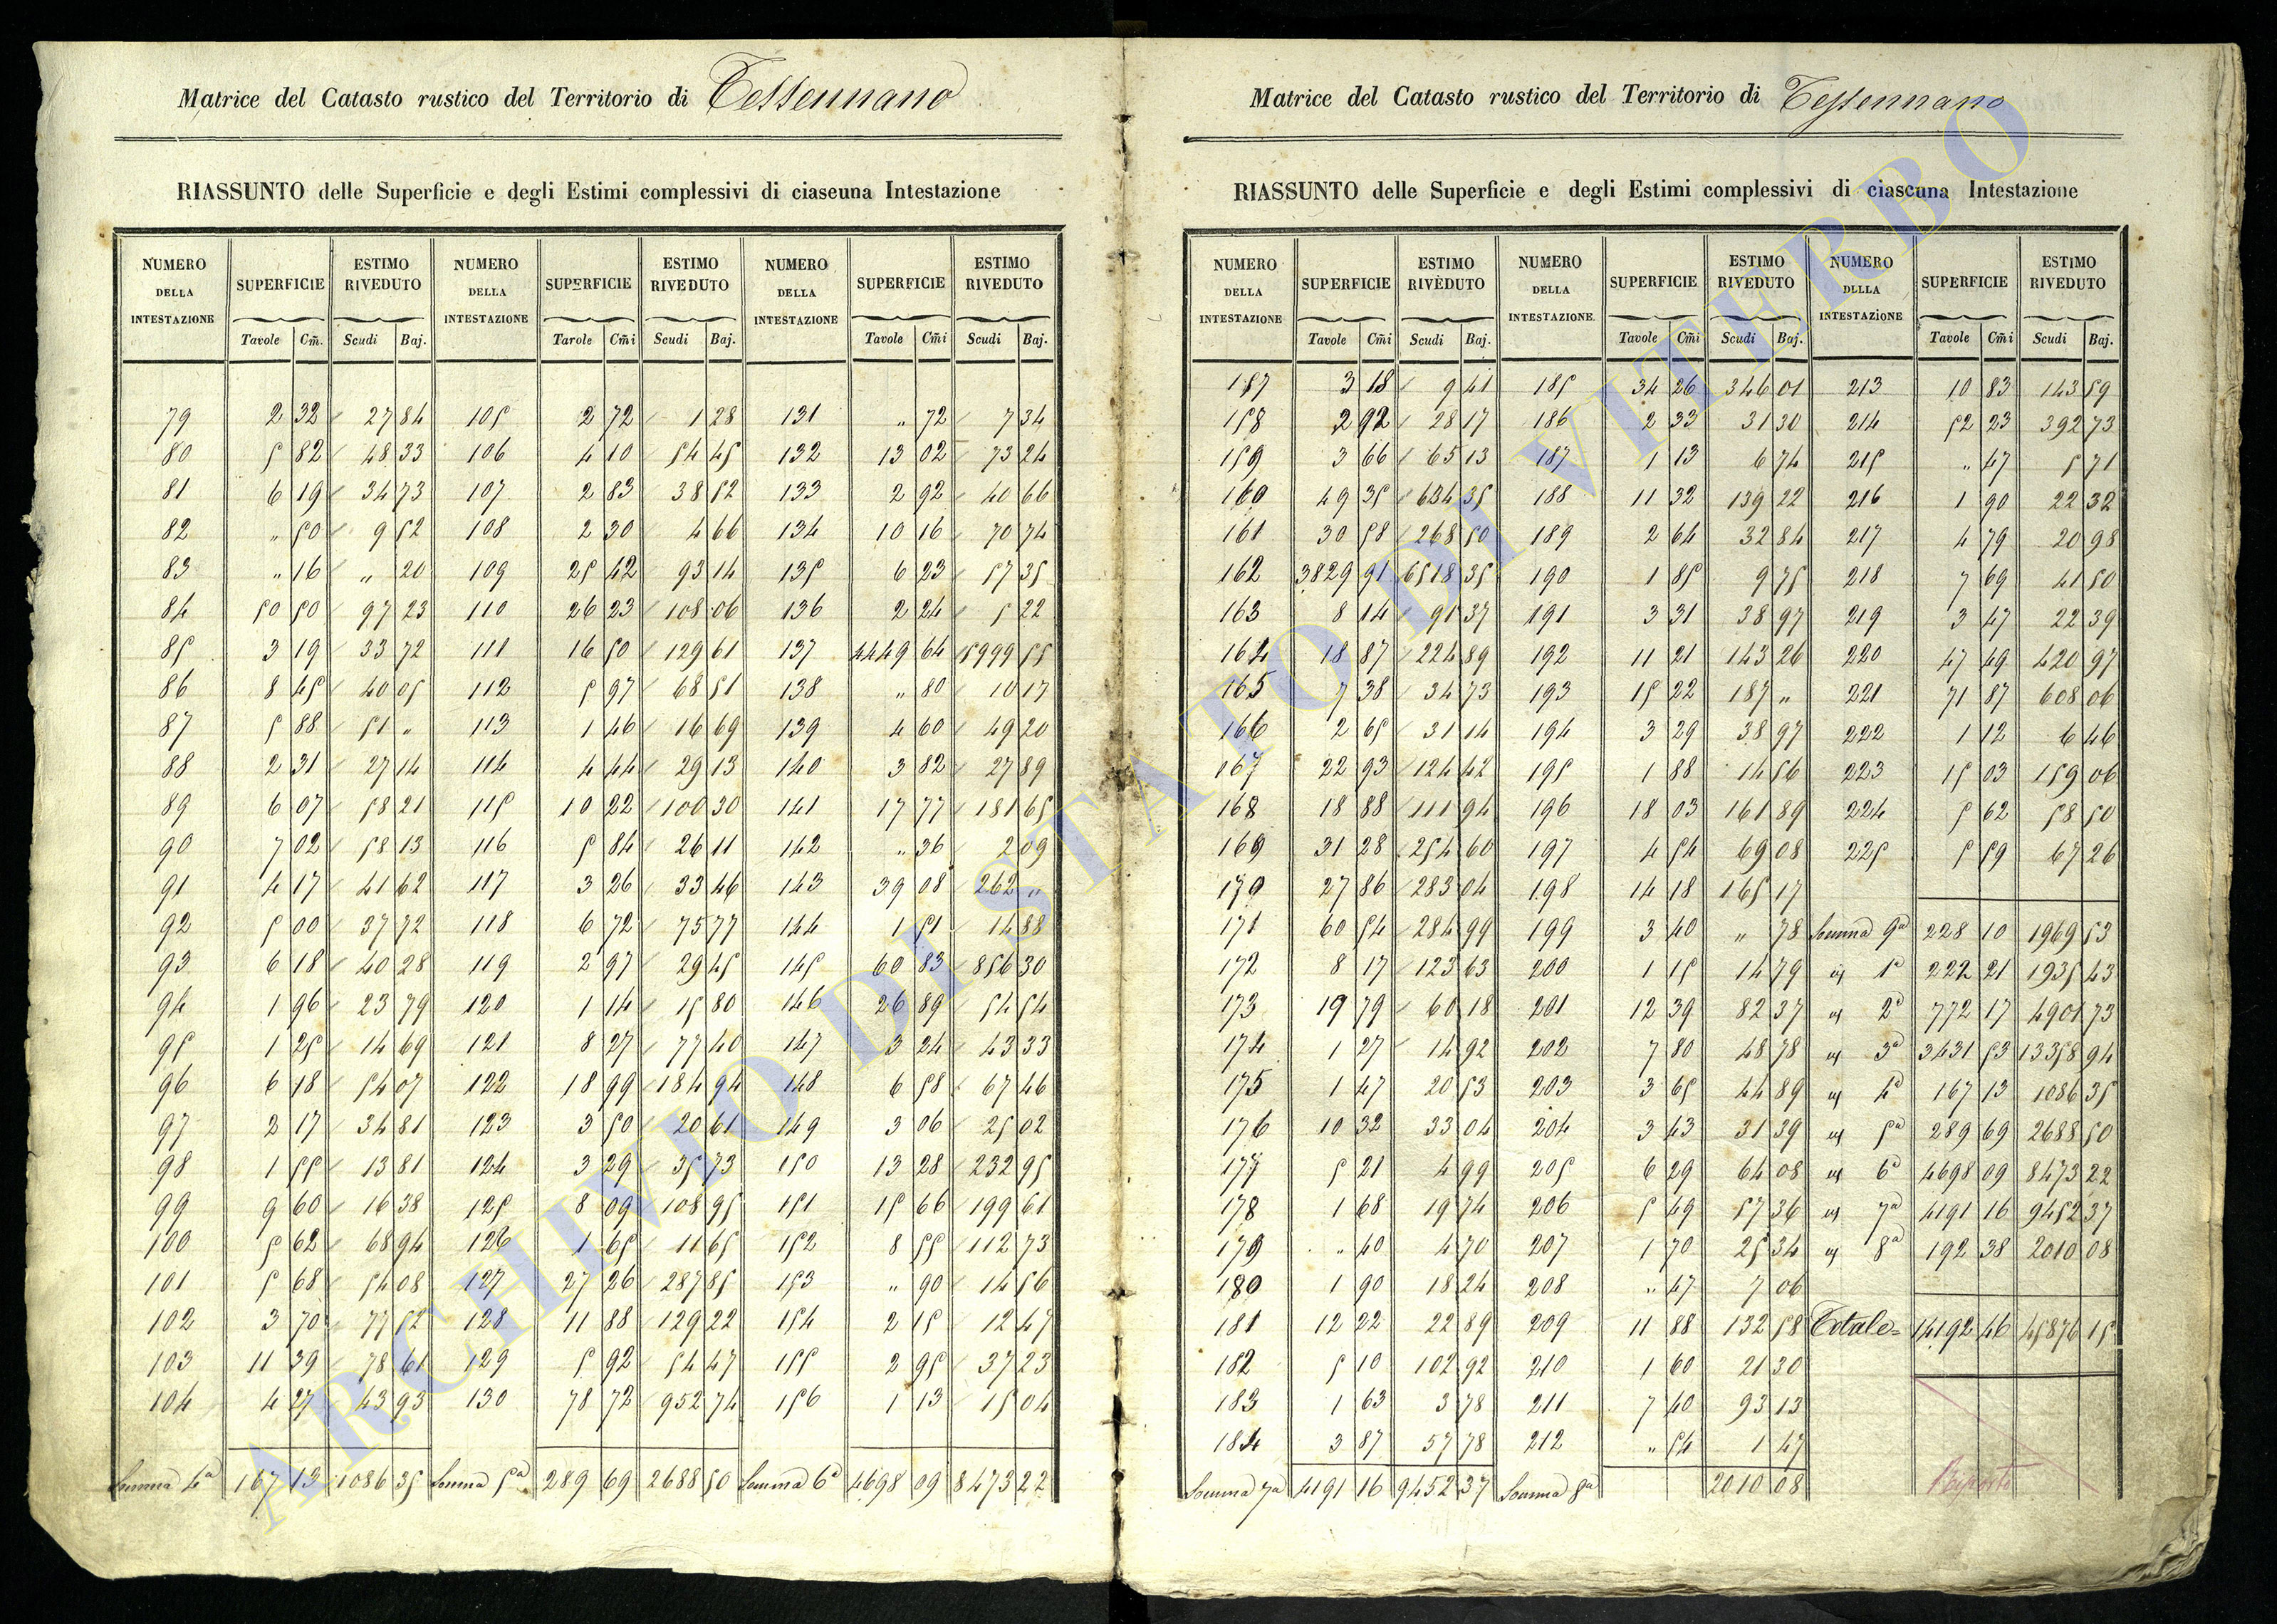 Matrice del Catasto rustico del Territorio di Tessennano
RIASSUNTO delle Superficie e degli Estimi complessivi di ciascuna Intestazione
NUMERO DELLA INTESTAZIONE SUPERFICIE ESTIMO RIVEDUTO NUMERO DELLA INTESTAZIONE SUPERFICIE ESTIMO RIVEDUTO NUMERO DELLA INTESTAZIONE SUPERFICIE ESTIMO RIVEDUTO
Tavole Cm̃. Scudi Baj. Tavole Cm̃i Scudi Baj. Tavole Cm̃i Scudi Baj.
79 2 32 27 84 105 2 72 1 28 131 „ 72 7 34
80 5 82 48 33 106 4 10 54 45 132 13 02 73 24
81 6 19 34 73 107 2 83 38 52 133 2 92 40 66
82 „ 50 9 52 108 2 30 4 66 134 10 16 70 74
83 „ 16 „ 20 109 25 42 93 14 135 6 23 57 35
84 50 50 97 23 110 26 23 108 06 136 2 24 5 22
85 3 19 33 72 111 16 50 129 61 137 4449 64 5999 55
86 8 45 40 05 112 5 97 68 51 138 „ 80 10 17
87 5 88 51 „ 113 1 46 16 69 139 4 60 49 20
88 2 31 27 14 114 4 44 29 13 140 3 82 27 89
89 6 07 58 21 115 10 22 100 30 141 17 77 181 65
90 7 02 58 13 116 5 84 26 11 142 „ 36 2 09
91 4 17 41 62 117 3 26 33 46 143 39 08 262 „
92 5 00 37 72 118 6 72 75 77 144 1 51 14 88
93 6 18 40 28 119 2 97 29 45 145 60 83 856 30
94 1 96 23 79 120 1 14 15 80 146 26 89 54 54
95 1 25 14 69 121 8 27 77 40 147 3 24 43 33
96 6 18 54 07 122 18 99 184 94 148 6 58 67 46
97 2 17 34 81 123 3 50 20 61 149 3 06 25 02
98 1 55 13 81 124 3 29 35 73 150 13 28 232 95
99 9 60 16 38 125 8 09 108 95 151 15 66 199 61
100 5 62 68 94 126 1 65 11 65 152 8 55 112 73
101 5 68 54 08 127 27 26 287 85 153 „ 90 14 56
102 3 70 77 52 128 11 88 129 22 154 2 15 12 47
103 11 39 78 61 129 5 92 54 47 155 2 95 37 23
104 4 27 43 93 130 78 72 952 74 156 1 13 15 04
Somma 4ª 167 13 1086 35 Somma 5ª 289 69 2688 50 Somma 6ª 4698 09 8473 22
Matrice del Catasto rustico del Territorio di Tessennano
RIASSUNTO delle Superficie e degli Estimi complessivi di ciascuna Intestazione
NUMERO DELLA INTESTAZIONE SUPERFICIE ESTIMO RIVEDUTO NUMERO DELLA INTESTAZIONE SUPERFICIE ESTIMO RIVEDUTO NUMERO DELLA INTESTAZIONE SUPERFICIE ESTIMO RIVEDUTO
Tavole Cm̃i Scudi Baj. Tavole Cm̃i Scudi Baj. Tavole Cm̃i Scudi Baj.
157 3 18 9 41 185 34 26 346 01 213 10 83 143 59
158 2 92 28 17 186 2 33 31 30 214 52 23 392 73
159 3 66 65 13 187 1 13 6 74 215 „ 47 5 71
160 49 35 634 35 188 11 32 139 22 216 1 90 22 32
161 30 58 268 50 189 2 64 32 84 217 4 79 20 98
162 3829 91 6518 35 190 1 85 9 75 218 7 69 41 50
163 8 14 91 37 191 3 31 38 97 219 3 47 22 39
164 18 87 224 89 192 11 21 143 26 220 47 49 420 97
165 7 38 34 73 193 15 22 187 „ 221 71 87 608 06
166 2 65 31 14 194 3 29 38 97 222 1 12 6 46
167 22 93 124 42 195 1 88 14 56 223 15 03 159 06
168 18 88 111 94 196 18 03 161 89 224 5 62 58 50
169 31 28 254 60 197 4 54 69 08 225 5 59 67 26
170 27 86 283 04 198 14 18 165 17
171 60 54 284 99 199 3 40 „ 78 Somma 9ª 228 10 1969 53
172 8 17 123 63 200 1 15 14 79 id 1ª 222 21 1935 43
173 19 79 60 18 201 12 39 82 37 id 2ª 772 17 4901 73
174 1 27 14 92 202 7 80 48 78 id 3ª 3431 53 13358 94
175 1 47 20 53 203 3 65 44 89 id 4ª 167 13 1086 35
176 10 32 33 04 204 3 43 31 39 id 5ª 289 69 2688 50
177 5 21 4 99 205 6 29 64 08 id 6ª 4698 09 8473 22
178 1 68 19 74 206 5 49 57 36 id 7ª 4191 16 9452 37
179 „ 40 4 70 207 1 70 25 34 id 8ª 192 38 2010 08
180 1 90 18 24 208 „ 47 7 06
181 12 22 22 89 209 11 88 132 58 Totale= 14192 46 45876 15
182 5 10 102 92 210 1 60 21 30
183 1 63 3 78 211 7 40 93 13
184 3 87 57 78 212 „ 54 1 47
Somma 7ª 4191 16 9452 37 Somma 8ª 2010 08
ARCHIVIO DI STATO DI VITERBO